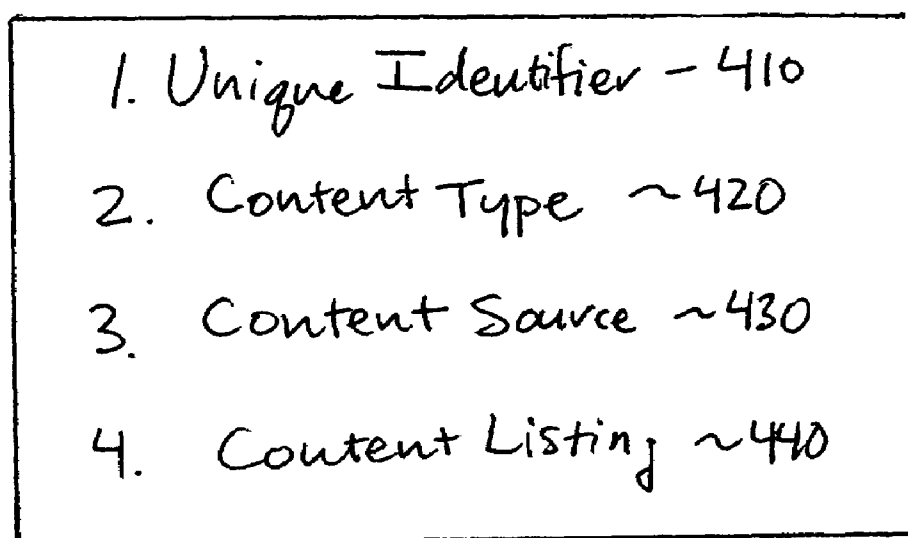 1. Unique Identifier - 410
2. Content Type ~420
3. Content Source ~430
4. Content Listing ~440